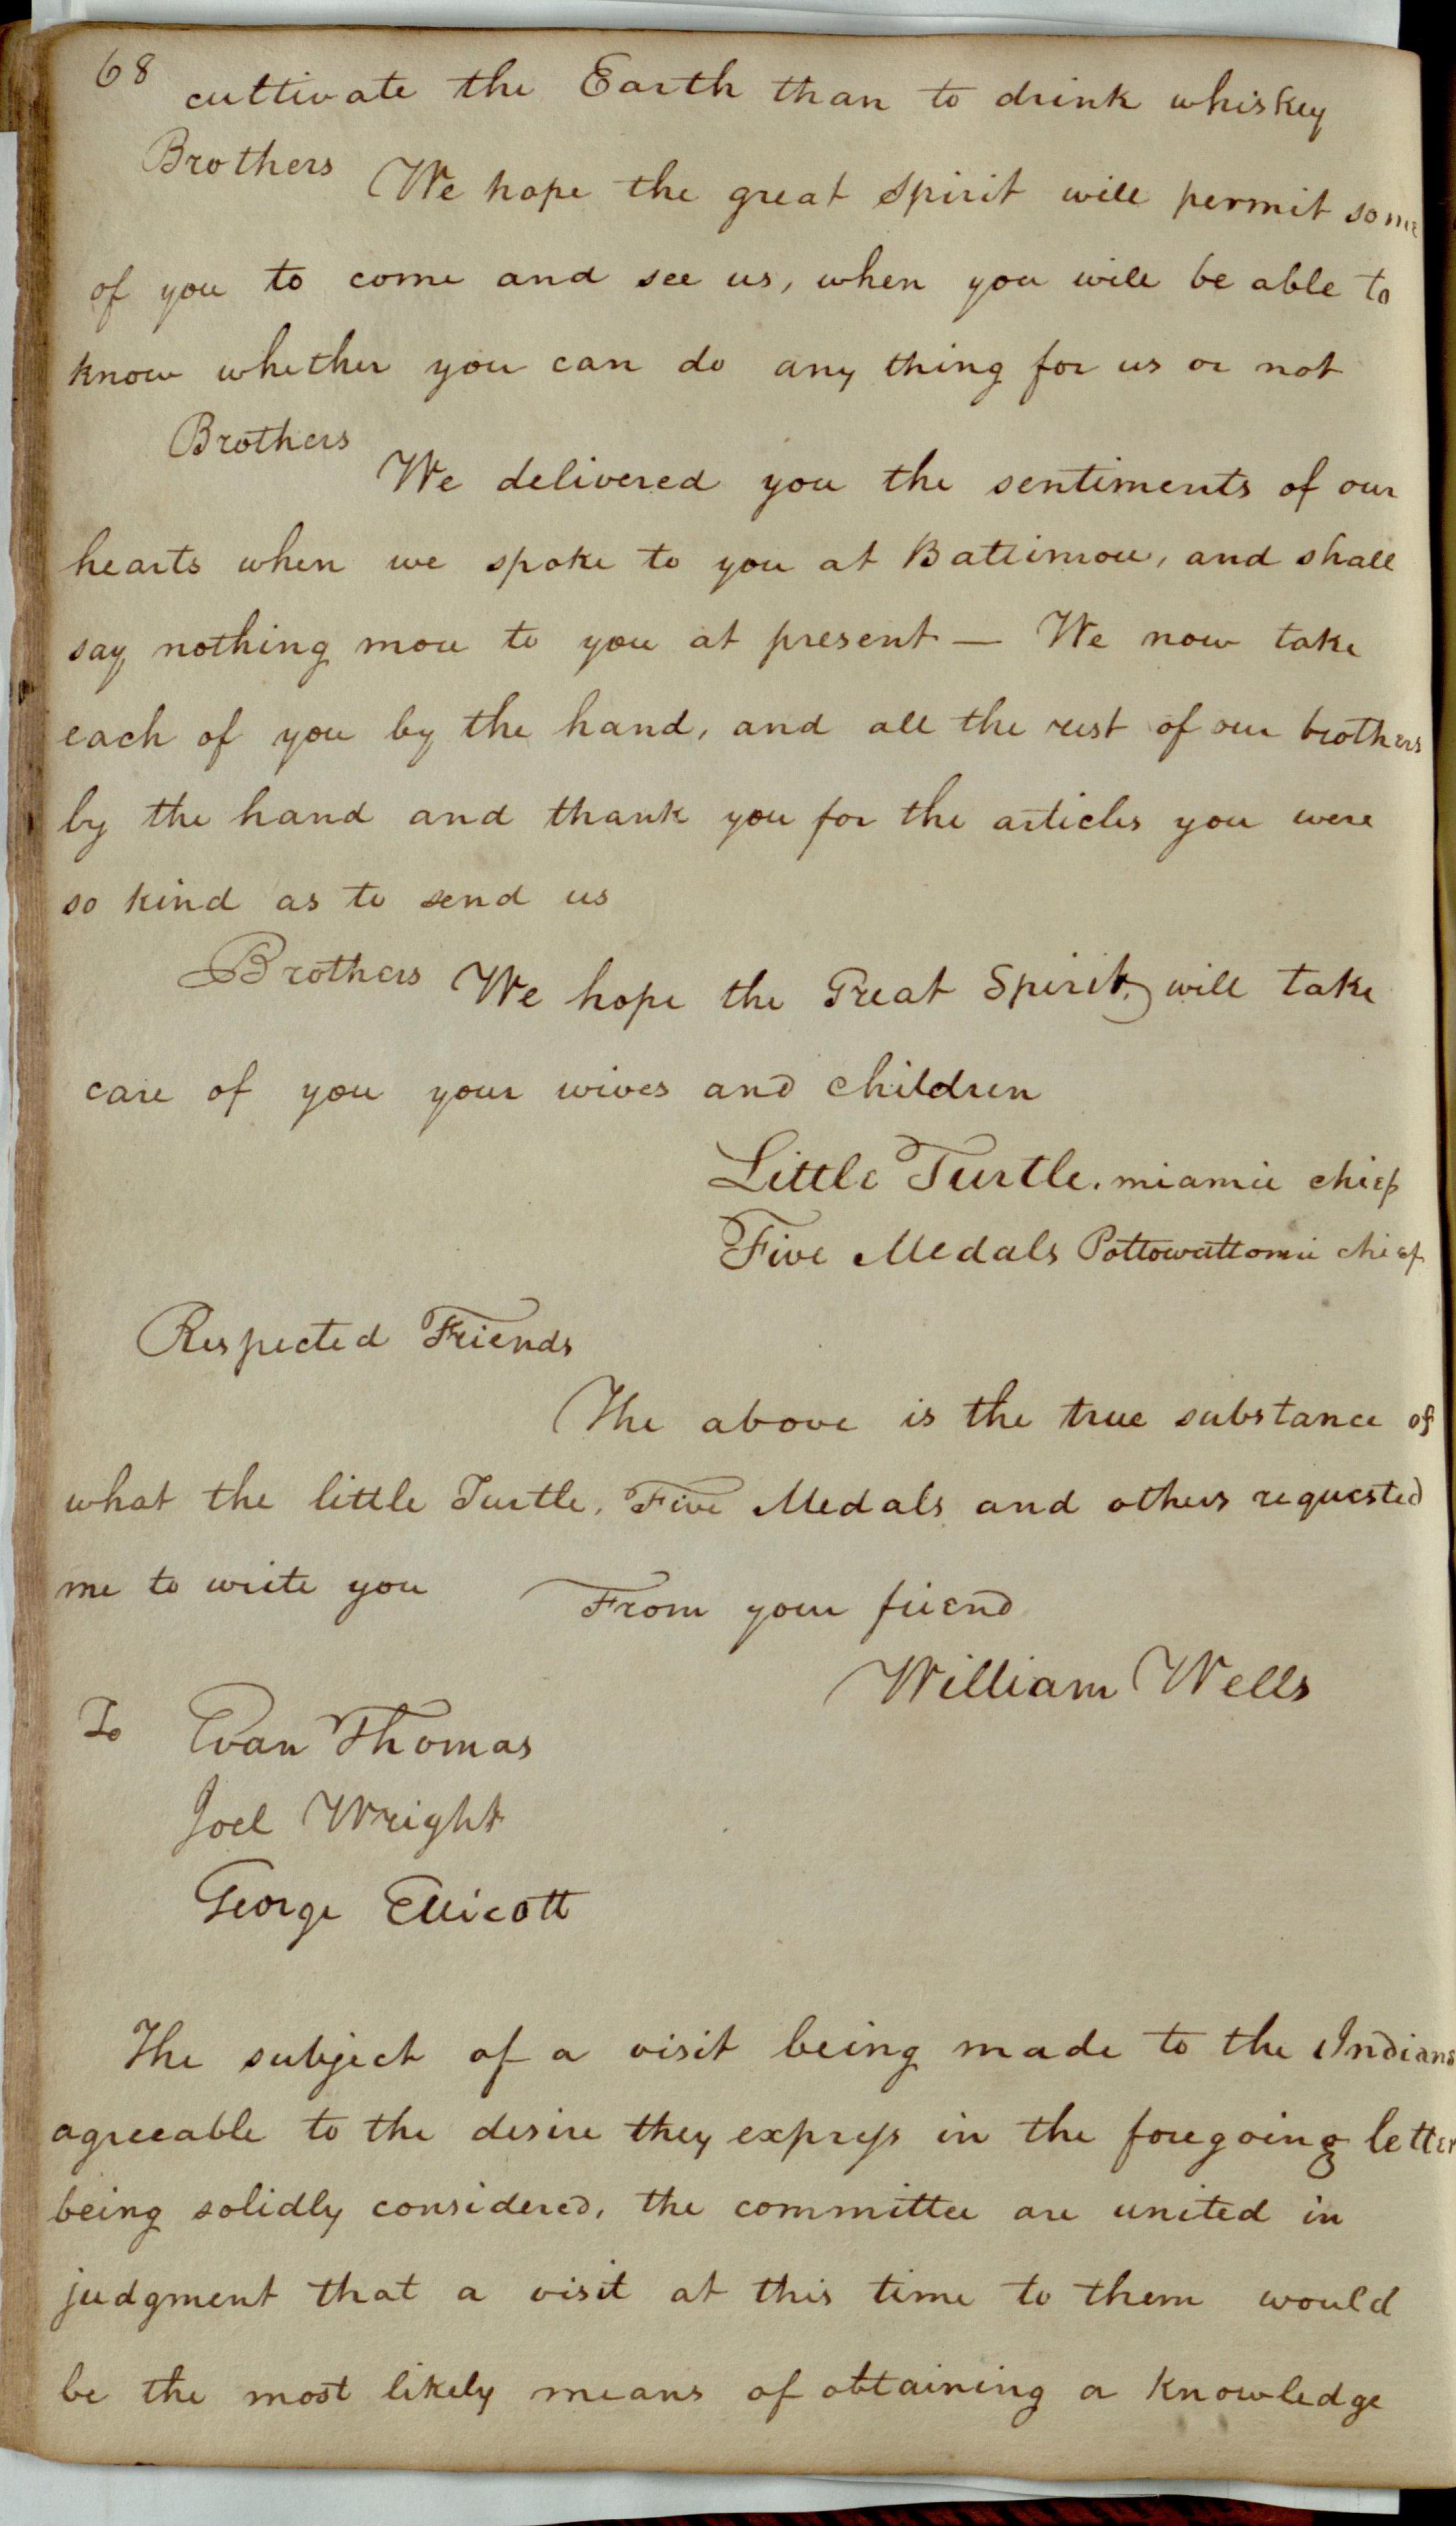 68
cultivate the Earth than to drink whiskey
Brothers We hope the great Spirit will permit some
of you to come and see us, when you will be able to
know whether you can do any thing for us or not
Brothers
We delivered you the sentiments of our
hearts when we spoke to you at Baltimore, and shall
say nothing more to you at present — We now take
each of you by the hand, and all the rest of our brothers
by the hand and thank you for the articles you were
so kind as to send us
Brothers We hope the Great Spirit, will take
care of you your wives and children
Little Turtle. miamie chief
Five Medals Pottowattomie chief
Respected Friends
The above is the true substance of
what the little Turtle, Five Medals and others requested
me to write you From your friend
William Wells
To Evan Thomas
Joel Wright
George Ellicott
The subject of a visit being made to the Indians
agreeable to the desire they express in the foregoing letter
being solidly considered, the committee are united in
judgment that a visit at this time to them would
be the most likely means of obtaining a knowledge